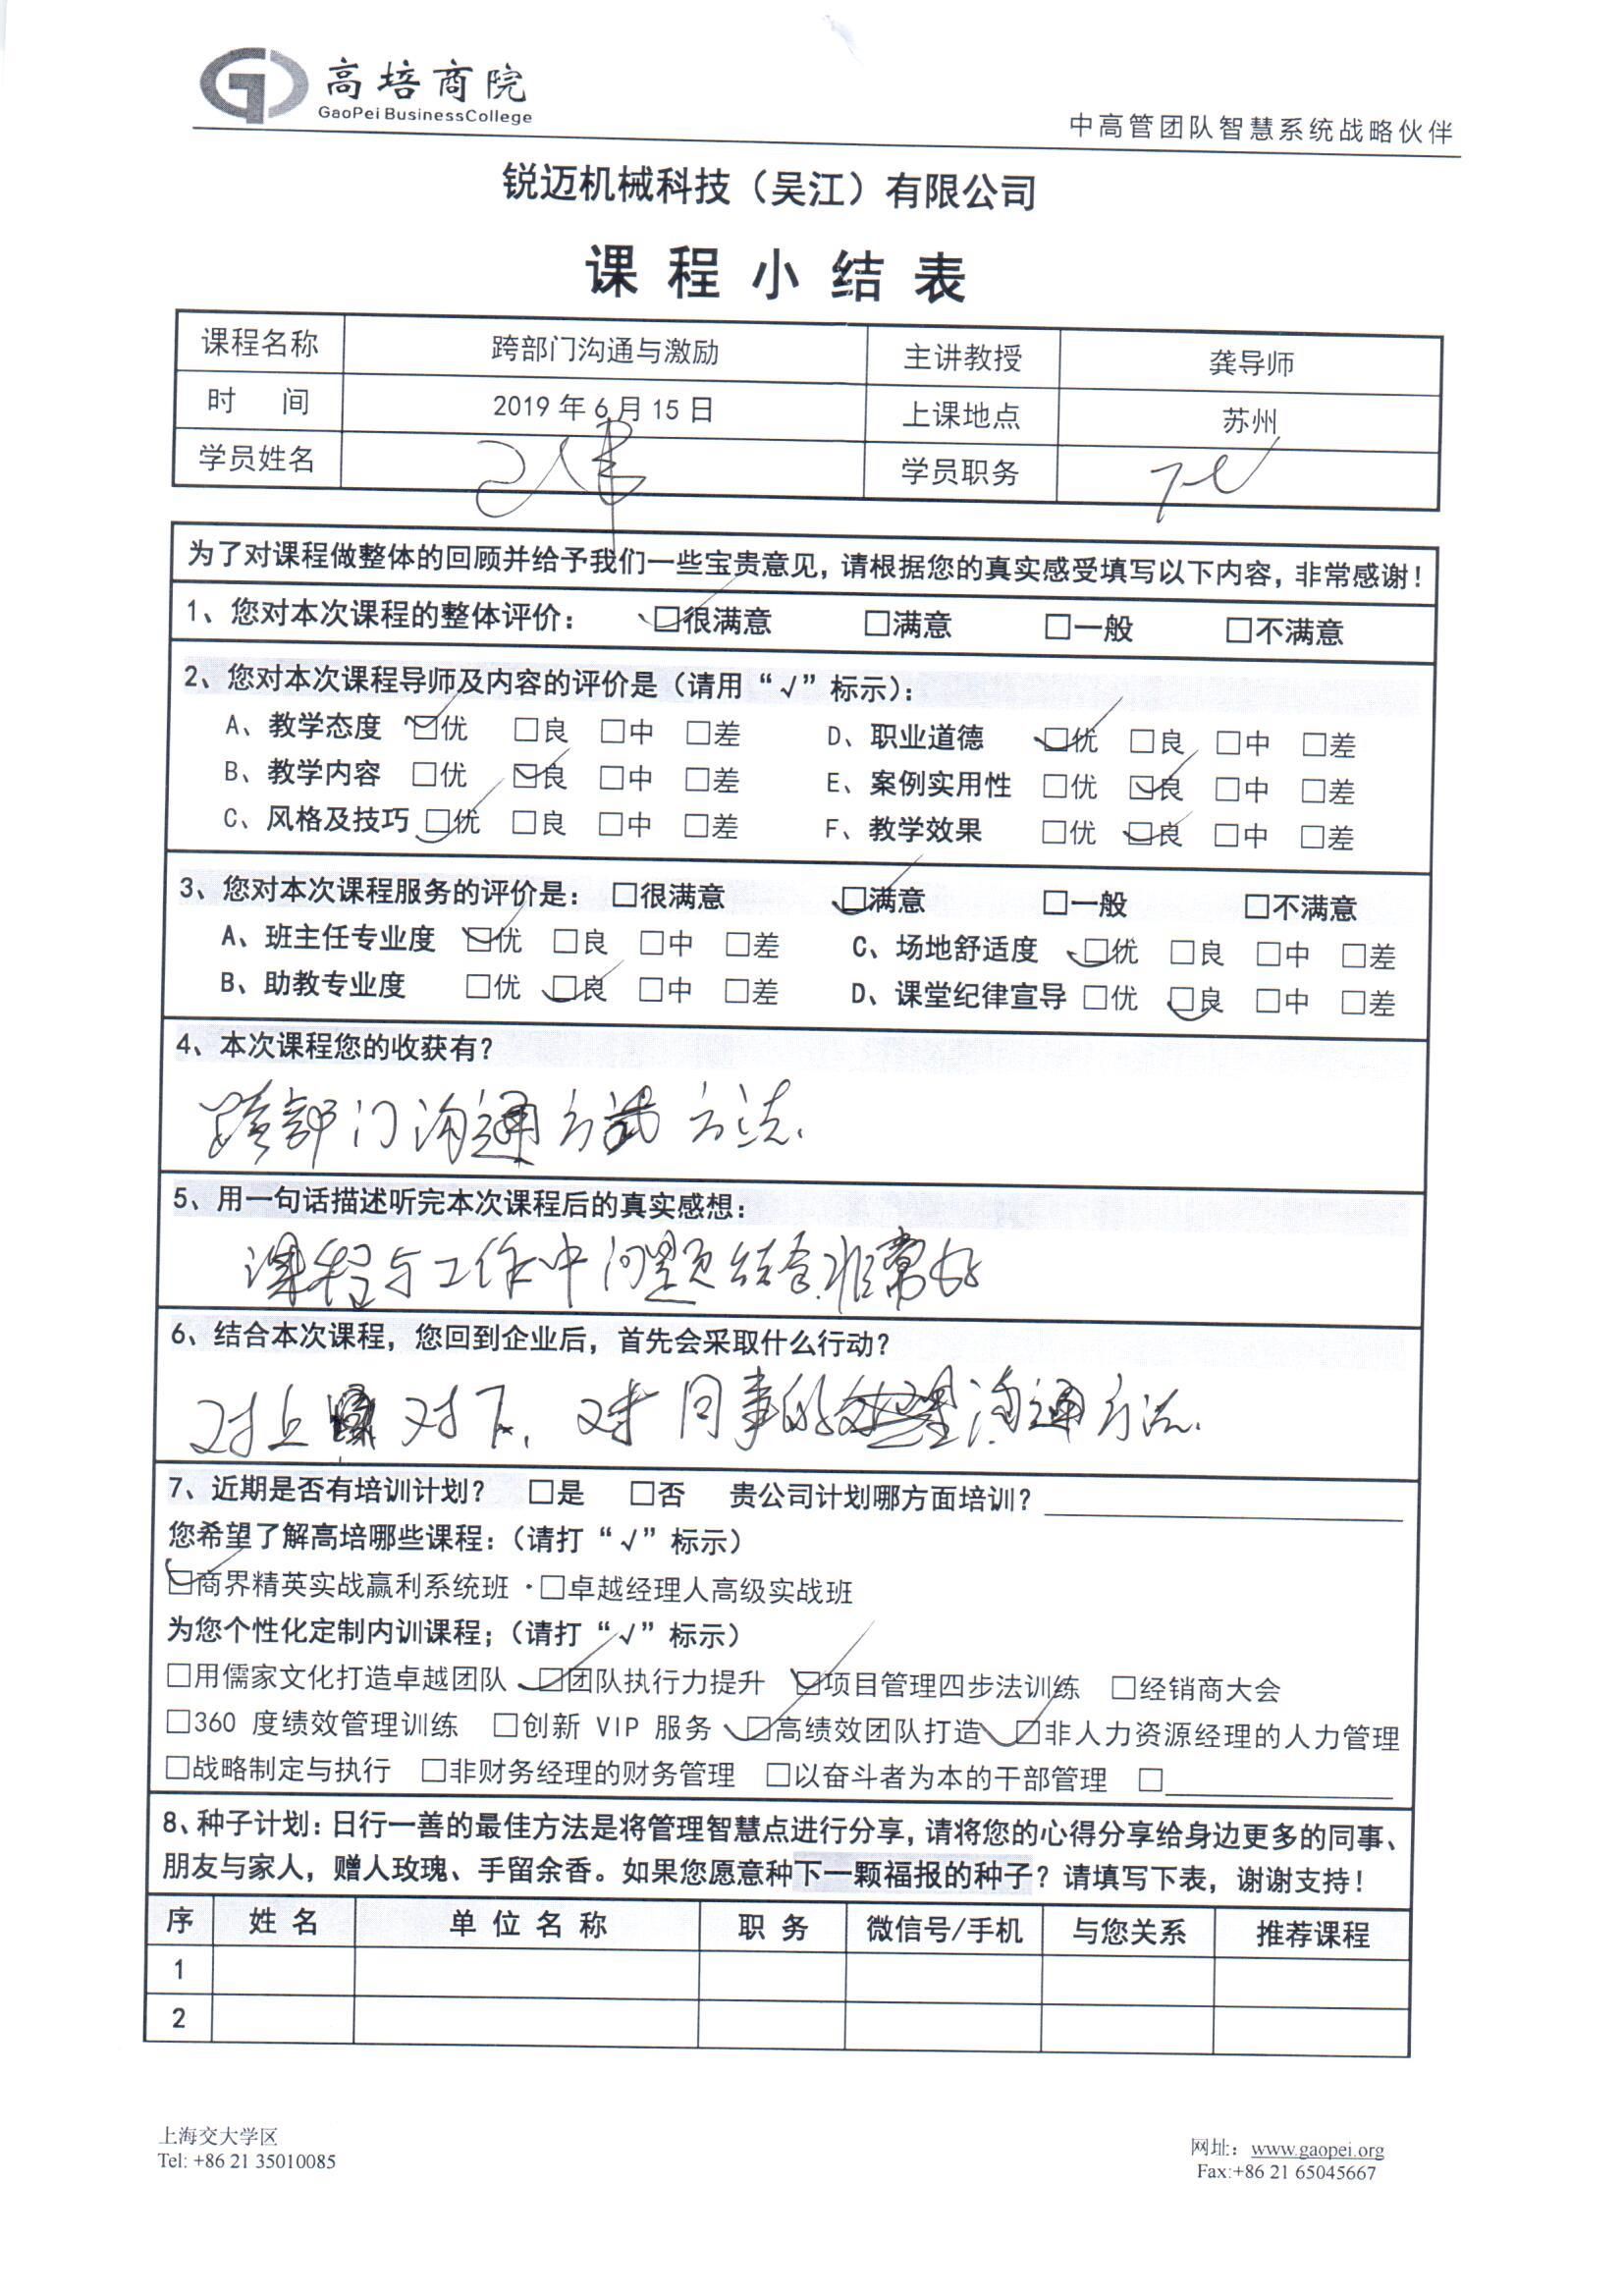 高培商院
GaoPei BusinessCollege
中高管团队智慧系统战略伙伴
锐迈机械科技（吴江）有限公司
课程小结表
课程名称 跨部门沟通与激励 主讲教授 龚导师
时 间 2019 年 6 月 15 日 上课地点 苏州
学员姓名 学员职务
为了对课程做整体的回顾并给予我们一些宝贵意见，请根据您的真实感受填写以下内容，非常感谢！
1、您对本次课程的整体评价： ☑很满意 □满意 □一般 □不满意
2、您对本次课程导师及内容的评价是（请用“√”标示）：
A、教学态度 ☑优 □良 □中 □差 D、职业道德 ☑优 □良 □中 □差
B、教学内容 □优 ☑良 □中 □差 E、案例实用性 □优 ☑良 □中 □差
C、风格及技巧 ☑优 □良 □中 □差 F、教学效果 □优 ☑良 □中 □差
3、您对本次课程服务的评价是： □很满意 ☑满意 □一般 □不满意
A、班主任专业度 ☑优 □良 □中 □差 C、场地舒适度 ☑优 □良 □中 □差
B、助教专业度 □优 ☑良 □中 □差 D、课堂纪律宣导 □优 ☑良 □中 □差
4、本次课程您的收获有？
跨部门沟通方式方法.
5、用一句话描述听完本次课程后的真实感想：
课程与工作中问题结合.非常好
6、结合本次课程，您回到企业后，首先会采取什么行动？
对上 对下、对同事的 沟通方法.
7、近期是否有培训计划？ □是 □否 贵公司计划哪方面培训？
您希望了解高培哪些课程：（请打“√”标示）
☑商界精英实战赢利系统班 · □卓越经理人高级实战班
为您个性化定制内训课程；（请打“√”标示）
□用儒家文化打造卓越团队 ☑团队执行力提升 ☑项目管理四步法训练 □经销商大会
□360 度绩效管理训练 □创新 VIP 服务 ☑高绩效团队打造 ☑非人力资源经理的人力管理
□战略制定与执行 □非财务经理的财务管理 □以奋斗者为本的干部管理 □
8、种子计划：日行一善的最佳方法是将管理智慧点进行分享，请将您的心得分享给身边更多的同事、
朋友与家人，赠人玫瑰、手留余香。如果您愿意种下一颗福报的种子？请填写下表，谢谢支持！
序 姓 名 单 位 名 称 职 务 微信号/手机 与您关系 推荐课程
1
2
上海交大学区
网址：www.gaopei.org
Tel: +86 21 35010085
Fax:+86 21 65045667